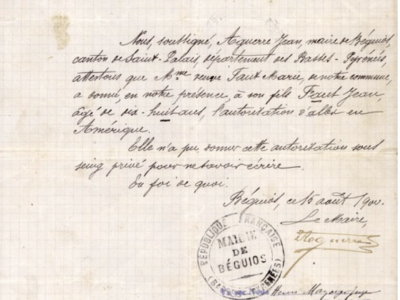 Nous, soussigné, Aguerre Jean, maire de Béguios,
canton de Saint-Palais, département des Basses-Pyrénées,
attestons que Mme veuve Faut Marie, de notre commune,
a donné, en notre présence à son fils Faut Jean,
âgé de dix-huit ans, l'autorisation d'aller en
Amérique.
Elle n'a pu donner cette autorisation sous
seing privé pour ne savoir écrire.
En foi de quoi.
Béguios, ce 16 août
Le Maire,
RÉPUBLIQUE FRANÇAISE
MAIRIE
DE
BÉGUIOS